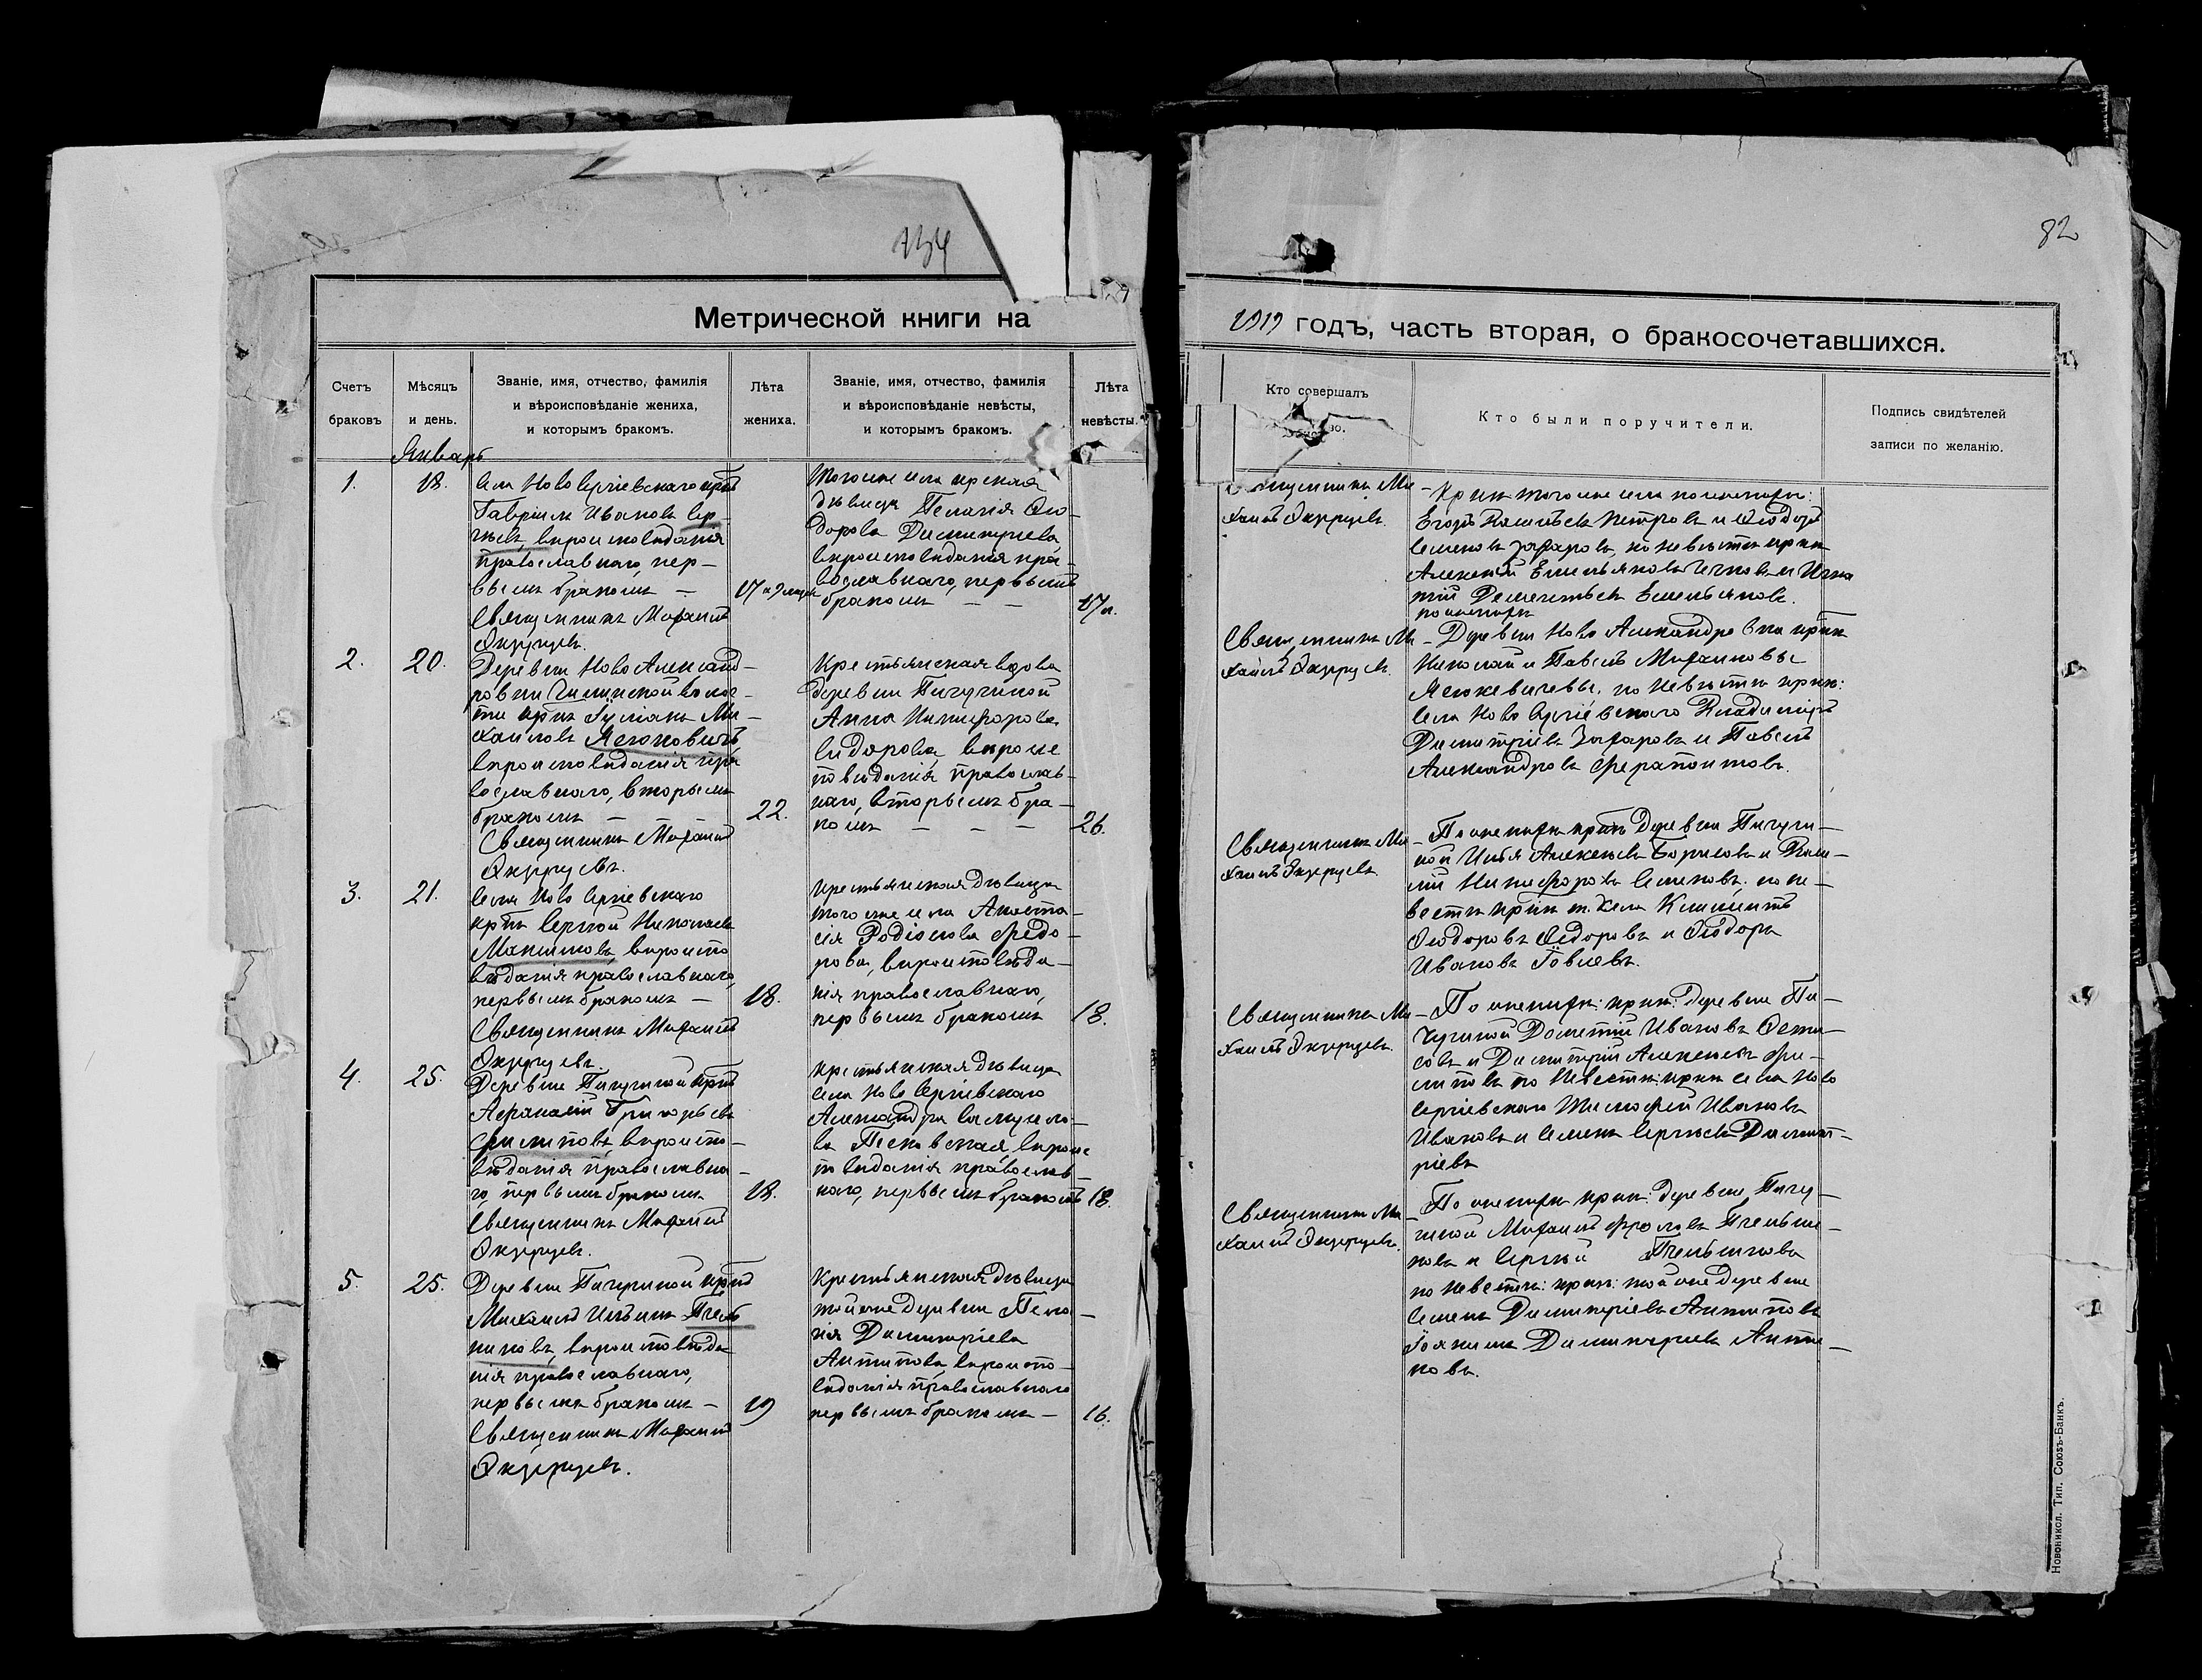 134
82
Метрической книги на
1919 годъ, часть вторая, о бракосочетавшихся.
Счетъ браковъ
Мѣсяцъ и день.
Званіе, имя, отчество, фамилія
и вѣроисповѣданіе жениха,
и которымъ бракомъ.
Лѣта жениха.
Званіе, имя, отчество, фамилія
и вѣроисповѣданіе невѣсты,
и которымъ бракомъ.
Лѣта невѣсты.
Кто совершалъ
Кто были поручители.
Подпись свидѣтелей
записи по желанію.
Январь
1.
18.
Села Ново Сергіевскаго крнъ
Гавріилъ Ивановъ Сер-
гѣевъ, вѣроисповѣданія
православнаго, пер-
вымъ бракомъ —
Священникъ Михаилъ
17 и 9 мѣсяц
Тогоже села крѣпкая
дѣвица Пелагія Ѳео-
дорова Димитріева
вѣроисповѣданія пра-
вославнаго, первымъ
бракомъ — —
17 л.
Священникъ Ми-
хаилъ
Крнъ тогоже села по женихѣ:
Петровъ и Ѳеодоръ
Семеновъ Захаровъ, по невѣстѣ крнъ
Алексѣй Емельяновъ и Игна
тій Дементьевъ Емельяновъ.
по женихѣ
2.
20.
Деревни Ново Александ-
ровки волос-
ти крнъ Ми-
хаиловъ
вѣроисповѣданія пра
вославнаго, вторымъ
бракомъ —
Священникъ Михаилъ
22.
Крестьянская вдова
деревни Пичугиной
Анна Никифорова
Сидорова, вѣроис
повѣданія православ-
наго, вторымъ бра-
комъ — — —
26.
Священникъ Ми-
хаилъ
Деревни Ново Александровки крнъ
Николай и Павелъ Михаиловы
по невѣстѣ крнъ:
села Ново Сергіевскаго Владиміръ
Димитріевъ Захаровъ и Павелъ
Александровъ Ферапонтовъ.
3.
21.
Села Ново Сергіевскаго
крнъ Сергѣй Николаевъ
Максимовъ, вѣроиспо
вѣданія православнаго,
первымъ бракомъ —
Священникъ Михаилъ
18.
Крестьянская дѣвица
тогоже села Анаста-
сія Родіонова Федо-
рова, вѣроисповѣда-
нія православнаго,
первымъ бракомъ
18.
Священникъ Ми-
хаилъ
По женихѣ крнъ деревни Пичуги-
ной Илья Алексѣевъ Борисовъ и
Никифоровъ Семеновъ. по не-
вестѣ крнъ т. села Климентъ
Ѳеодоровъ Ѳедоровъ и Ѳеодоръ
Ивановъ
4.
25.
Деревни Пичугиной крнъ
Афанасій Григорьевъ
Филиповъ, вѣроиспо-
вѣданія православна-
го, первымъ бракомъ
Священникъ Михаилъ
18.
Крестьянская дѣвица
села Ново Сергіевскаго
Александра Самуило-
ва Песковская, вѣроис
повѣданія православ-
наго, первымъ бракомъ
18.
Священникъ Ми-
хаилъ
По женихѣ: крнъ: деревни Пи-
чугиной Дометій Ивановъ
и Димитрій Алексѣевъ Фи-
липовъ по невестѣ: крнъ села Ново
Сергіевскаго Тимофей Ивановъ
Ивановъ и Семенъ Сергѣевъ Димит-
ріевъ
5.
25.
Деревни Пичугиной крнъ
Михаилъ Ильинъ Пчель
никовъ, вѣроисповѣда
нія православнаго,
первымъ бракомъ —
Священникъ Михаилъ
19
Крестьянская дѣвица
тойже деревни Пела-
гія Димитріева
Антипова, вѣроиспо-
вѣданія православнаго
первымъ бракомъ —
16.
Священникъ Ми-
хаилъ
По женихѣ крнъ: деревни Пичу-
гиной Михаилъ Фроловъ Пчельни-
ковъ и Сергѣй Пчельниковъ
по невестѣ: крнъ: тойже деревни
Семенъ Димитріевъ Антиповъ
Іоакимъ Димитріевъ Анти-
повъ.
Новоникол. Тип. Союзъ-Банкъ.